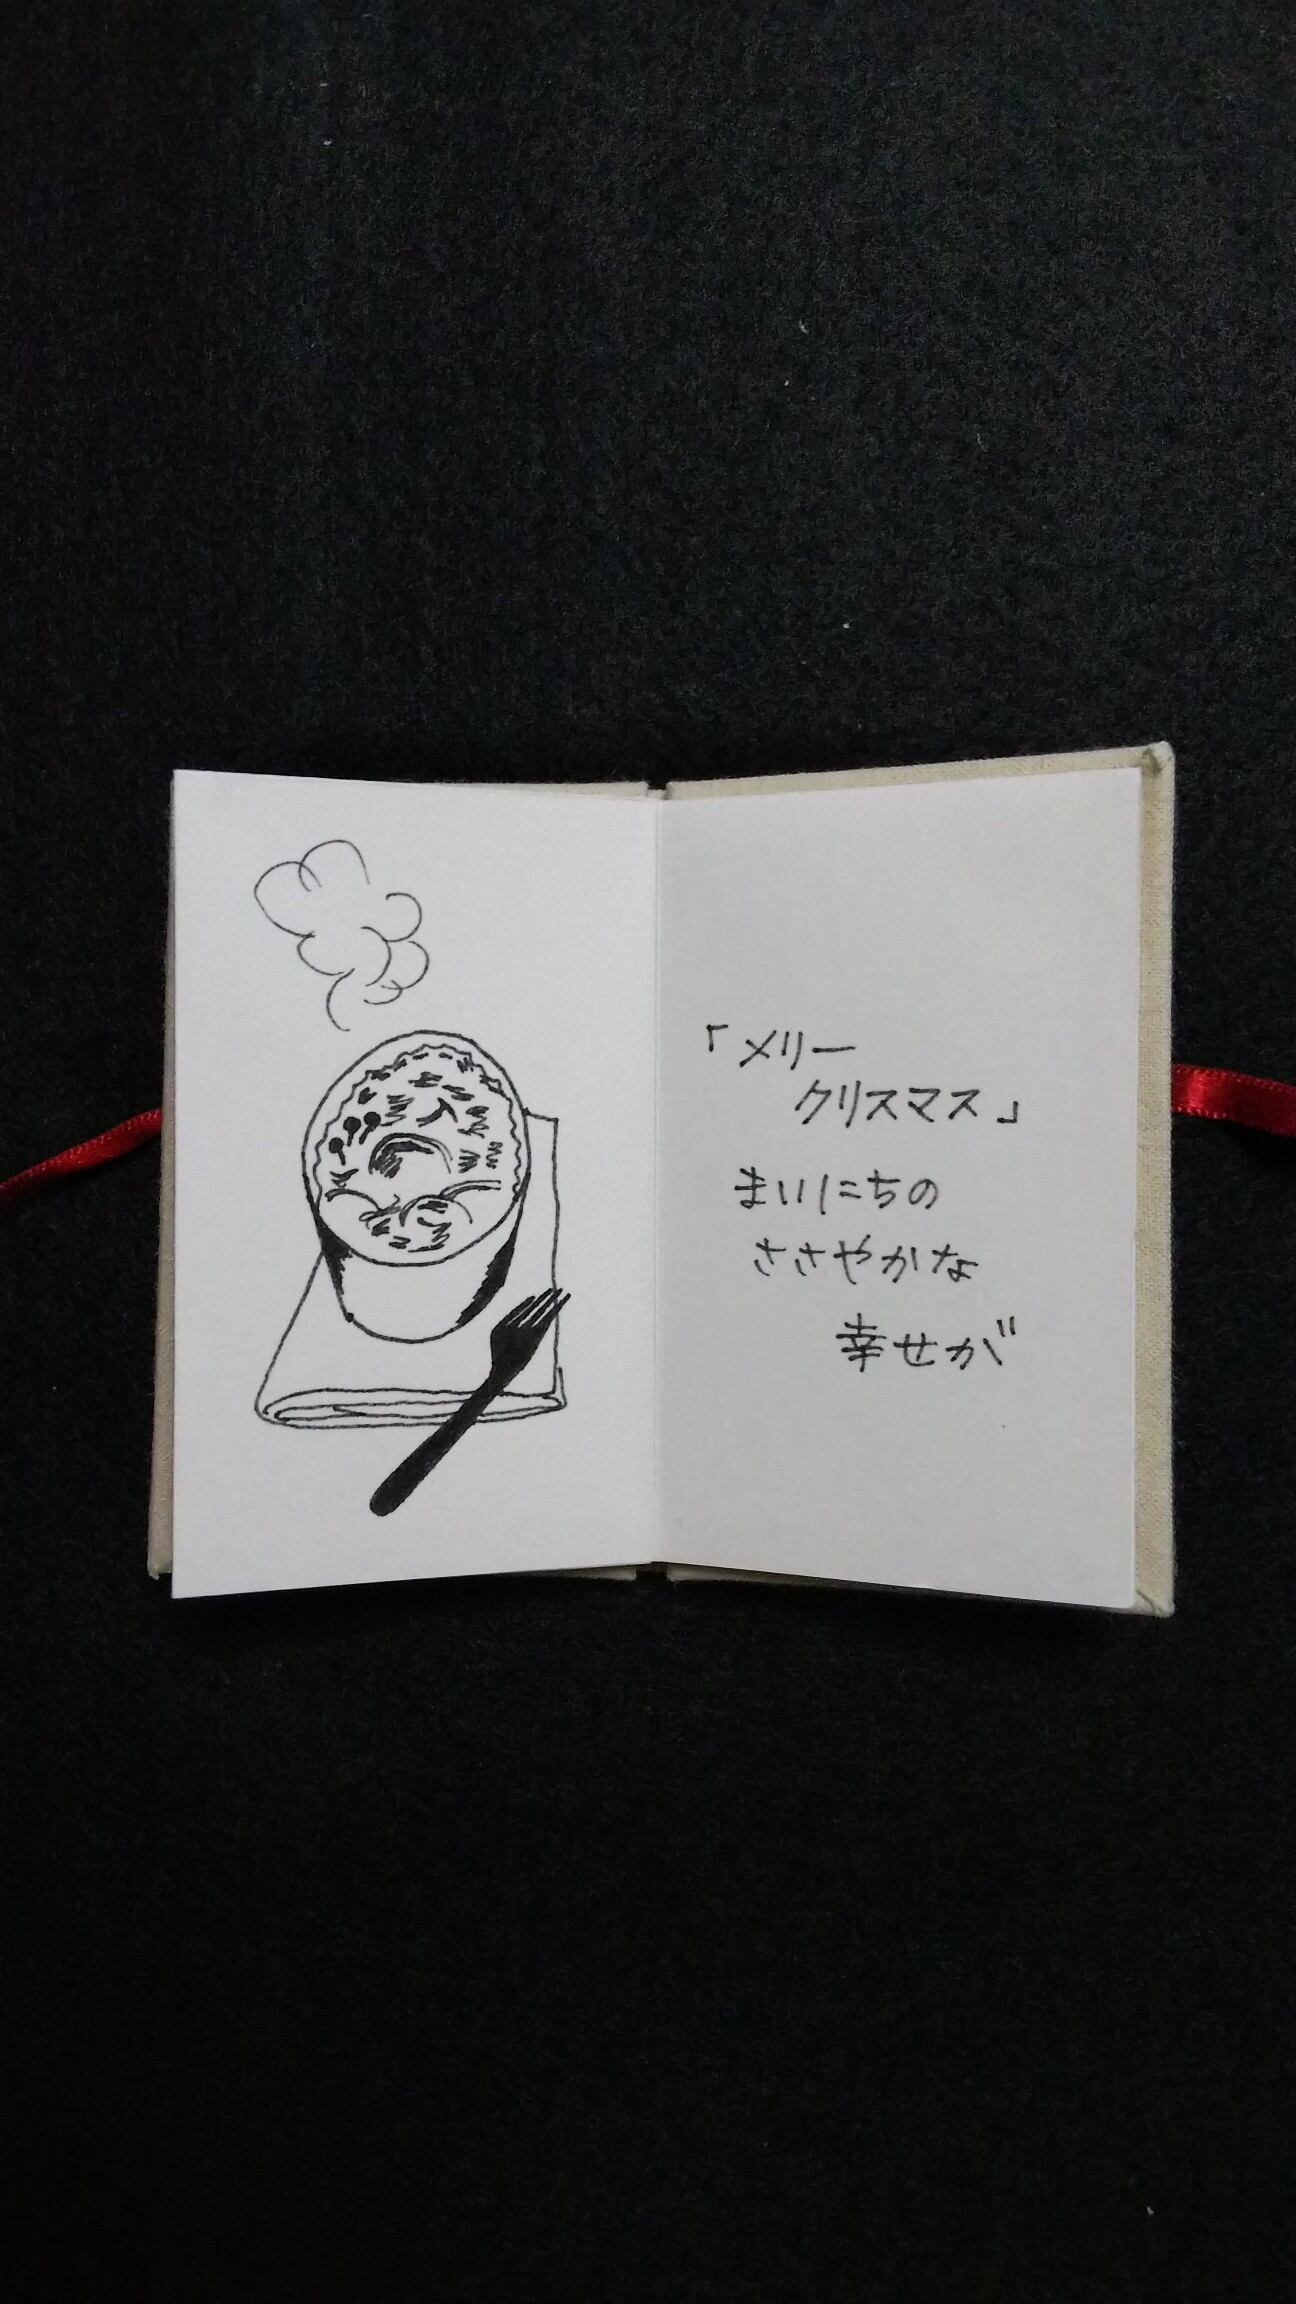 「メリー
クリスマス」
まいにちの
ささやかな
幸せが